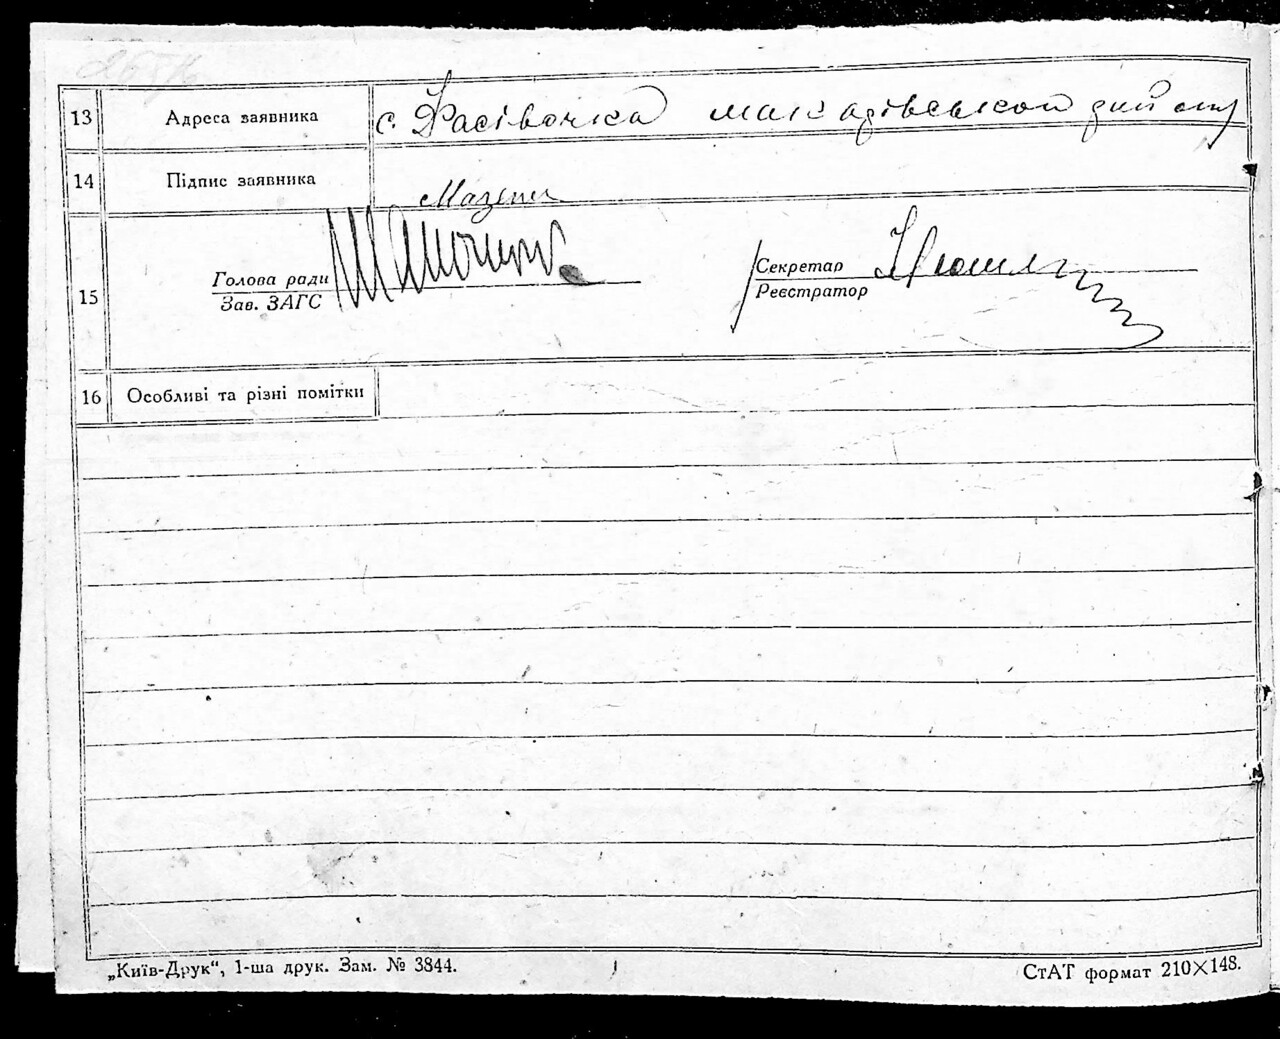 13 Адреса заявника с. Фасівочка макарівської
14 Підпис заявника
15 Голова ради
Зав. ЗАГС
Секретар
Реєстратор
16 Особливі та різні помітки
„Київ-Друк“, 1-ша друк. Зам. № 3844.
СтАТ формат 210×148.